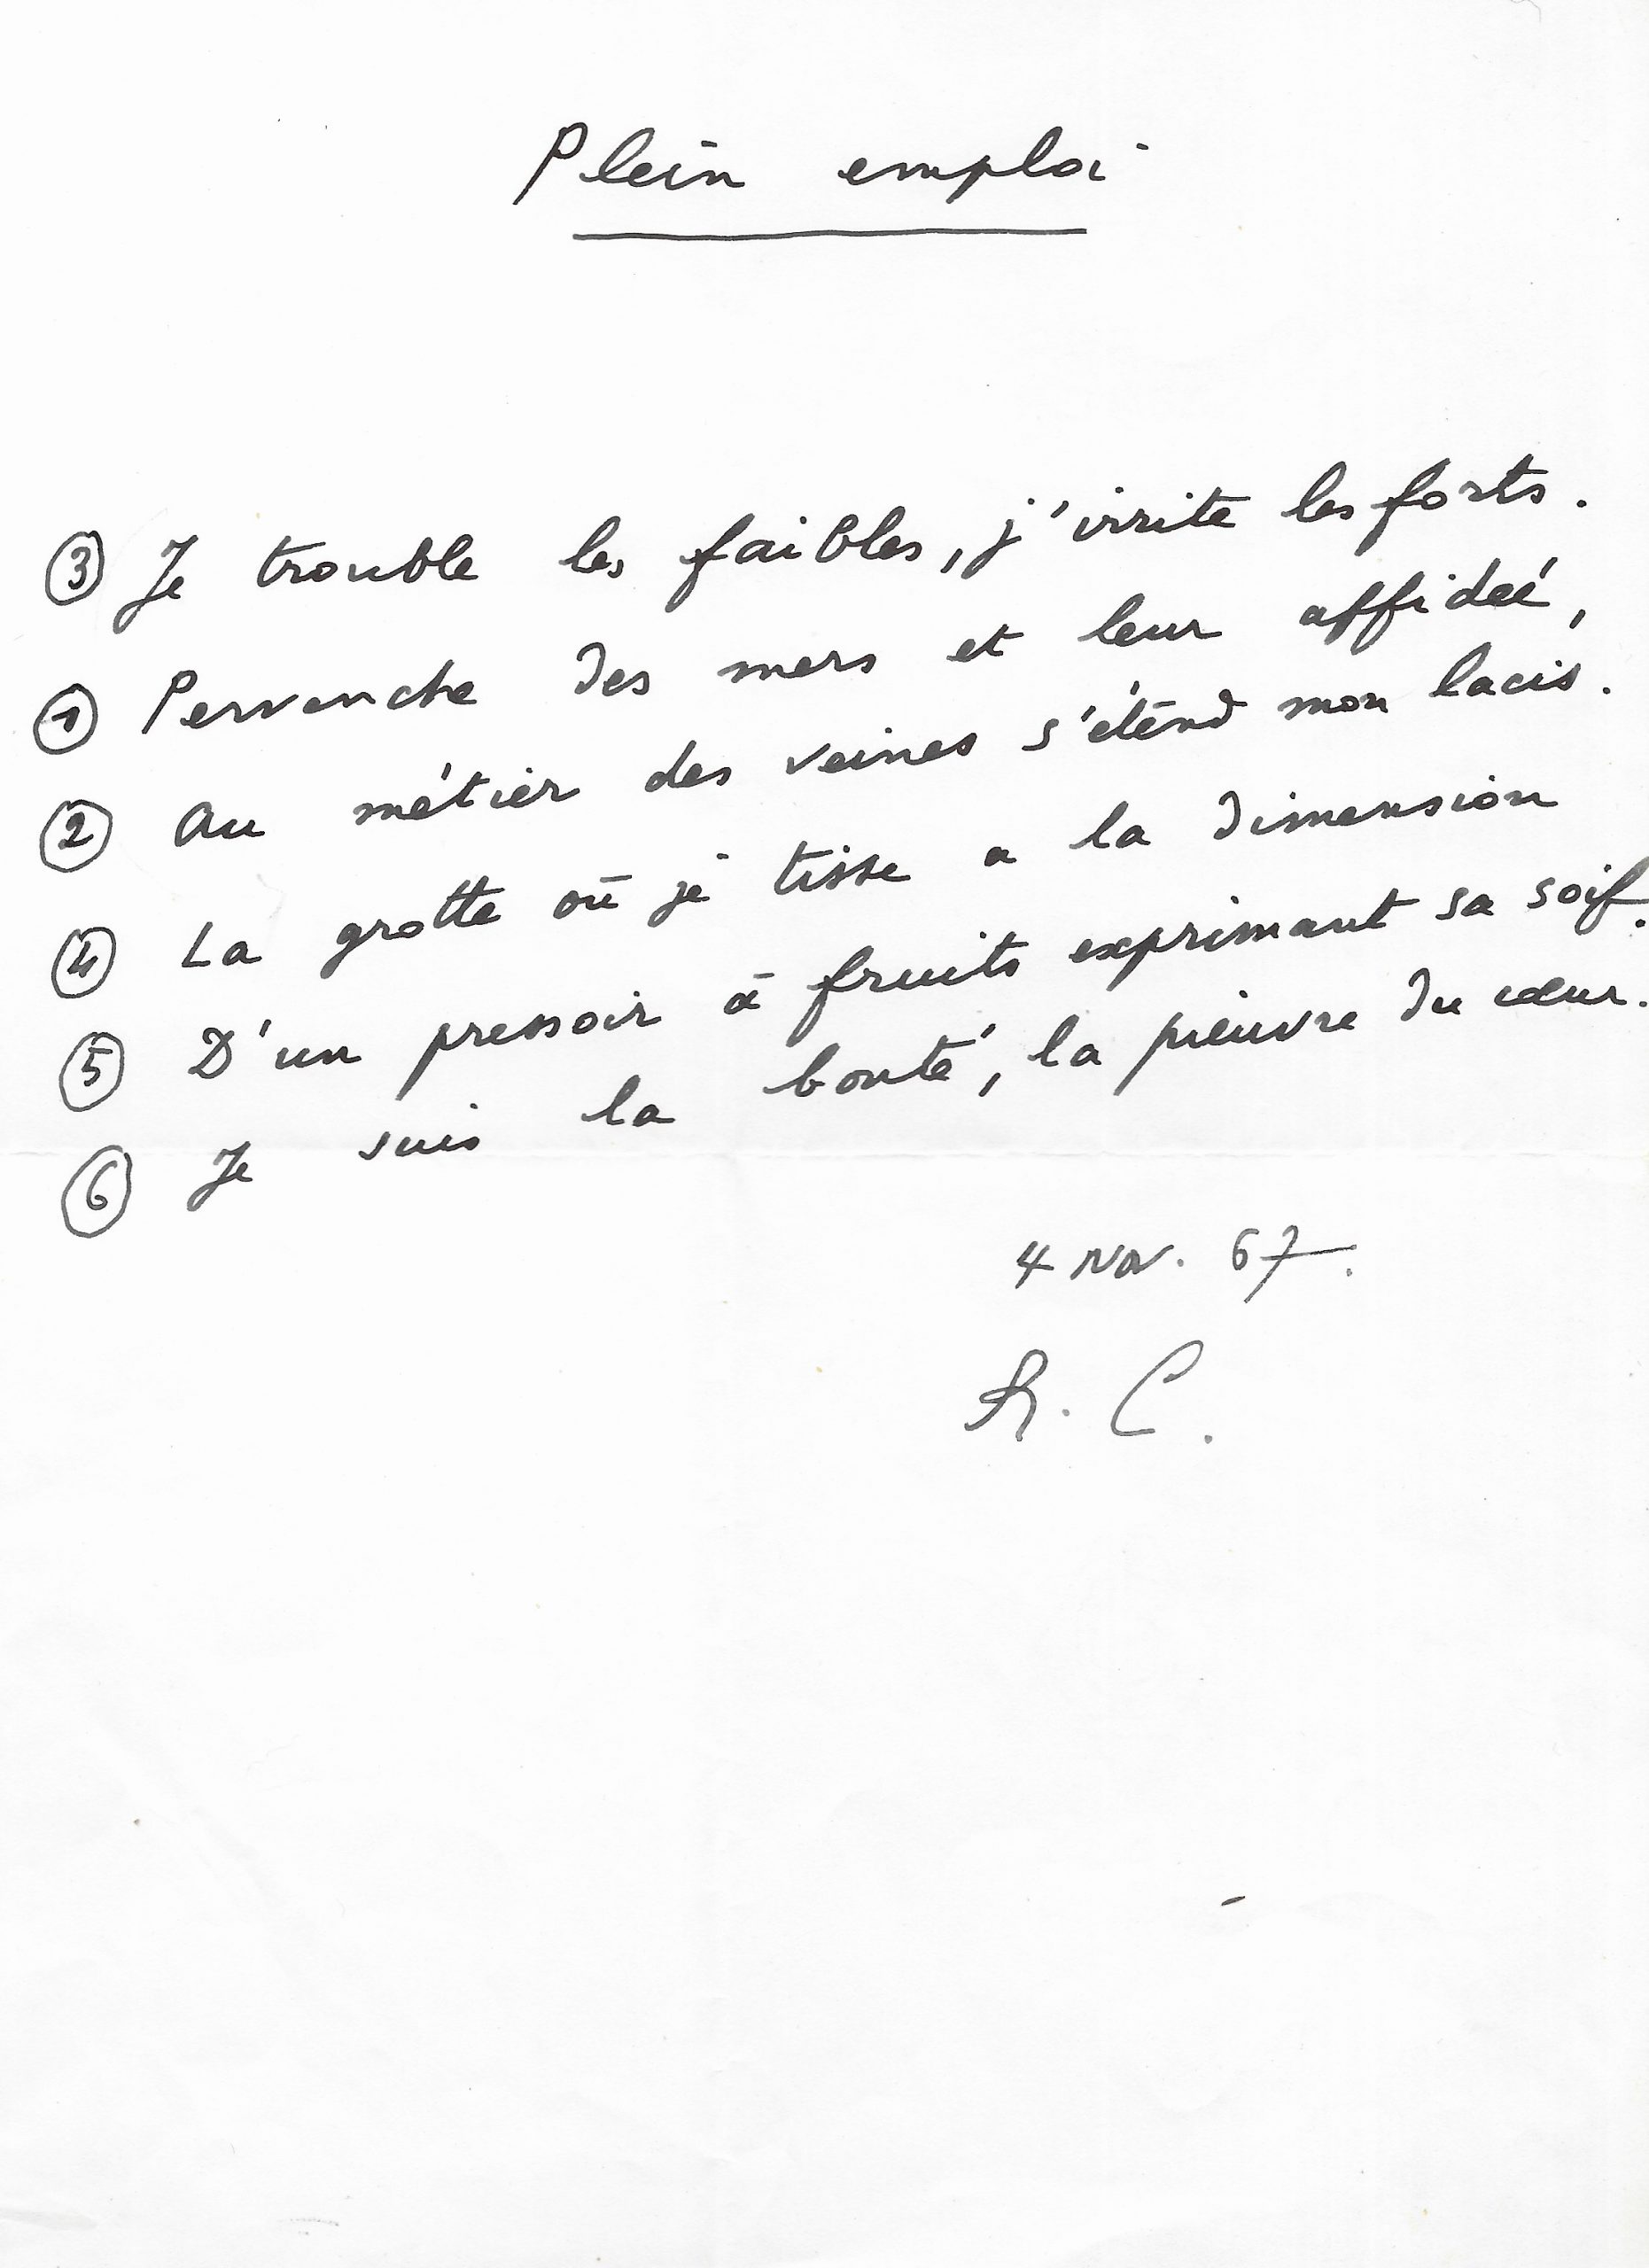 Plein emploi
③ Je trouble les faibles, j'irrite les forts.
① Pervenche des mers et leur affidée,
② Au métier des veines s'étend mon lacis.
④ La grotte où je tisse a la dimension
⑤ D'un pressoir à fruits exprimant sa soif.
⑥ Je suis la bonté, la pieuvre du cœur.
4 Nov. 67.
R. C.